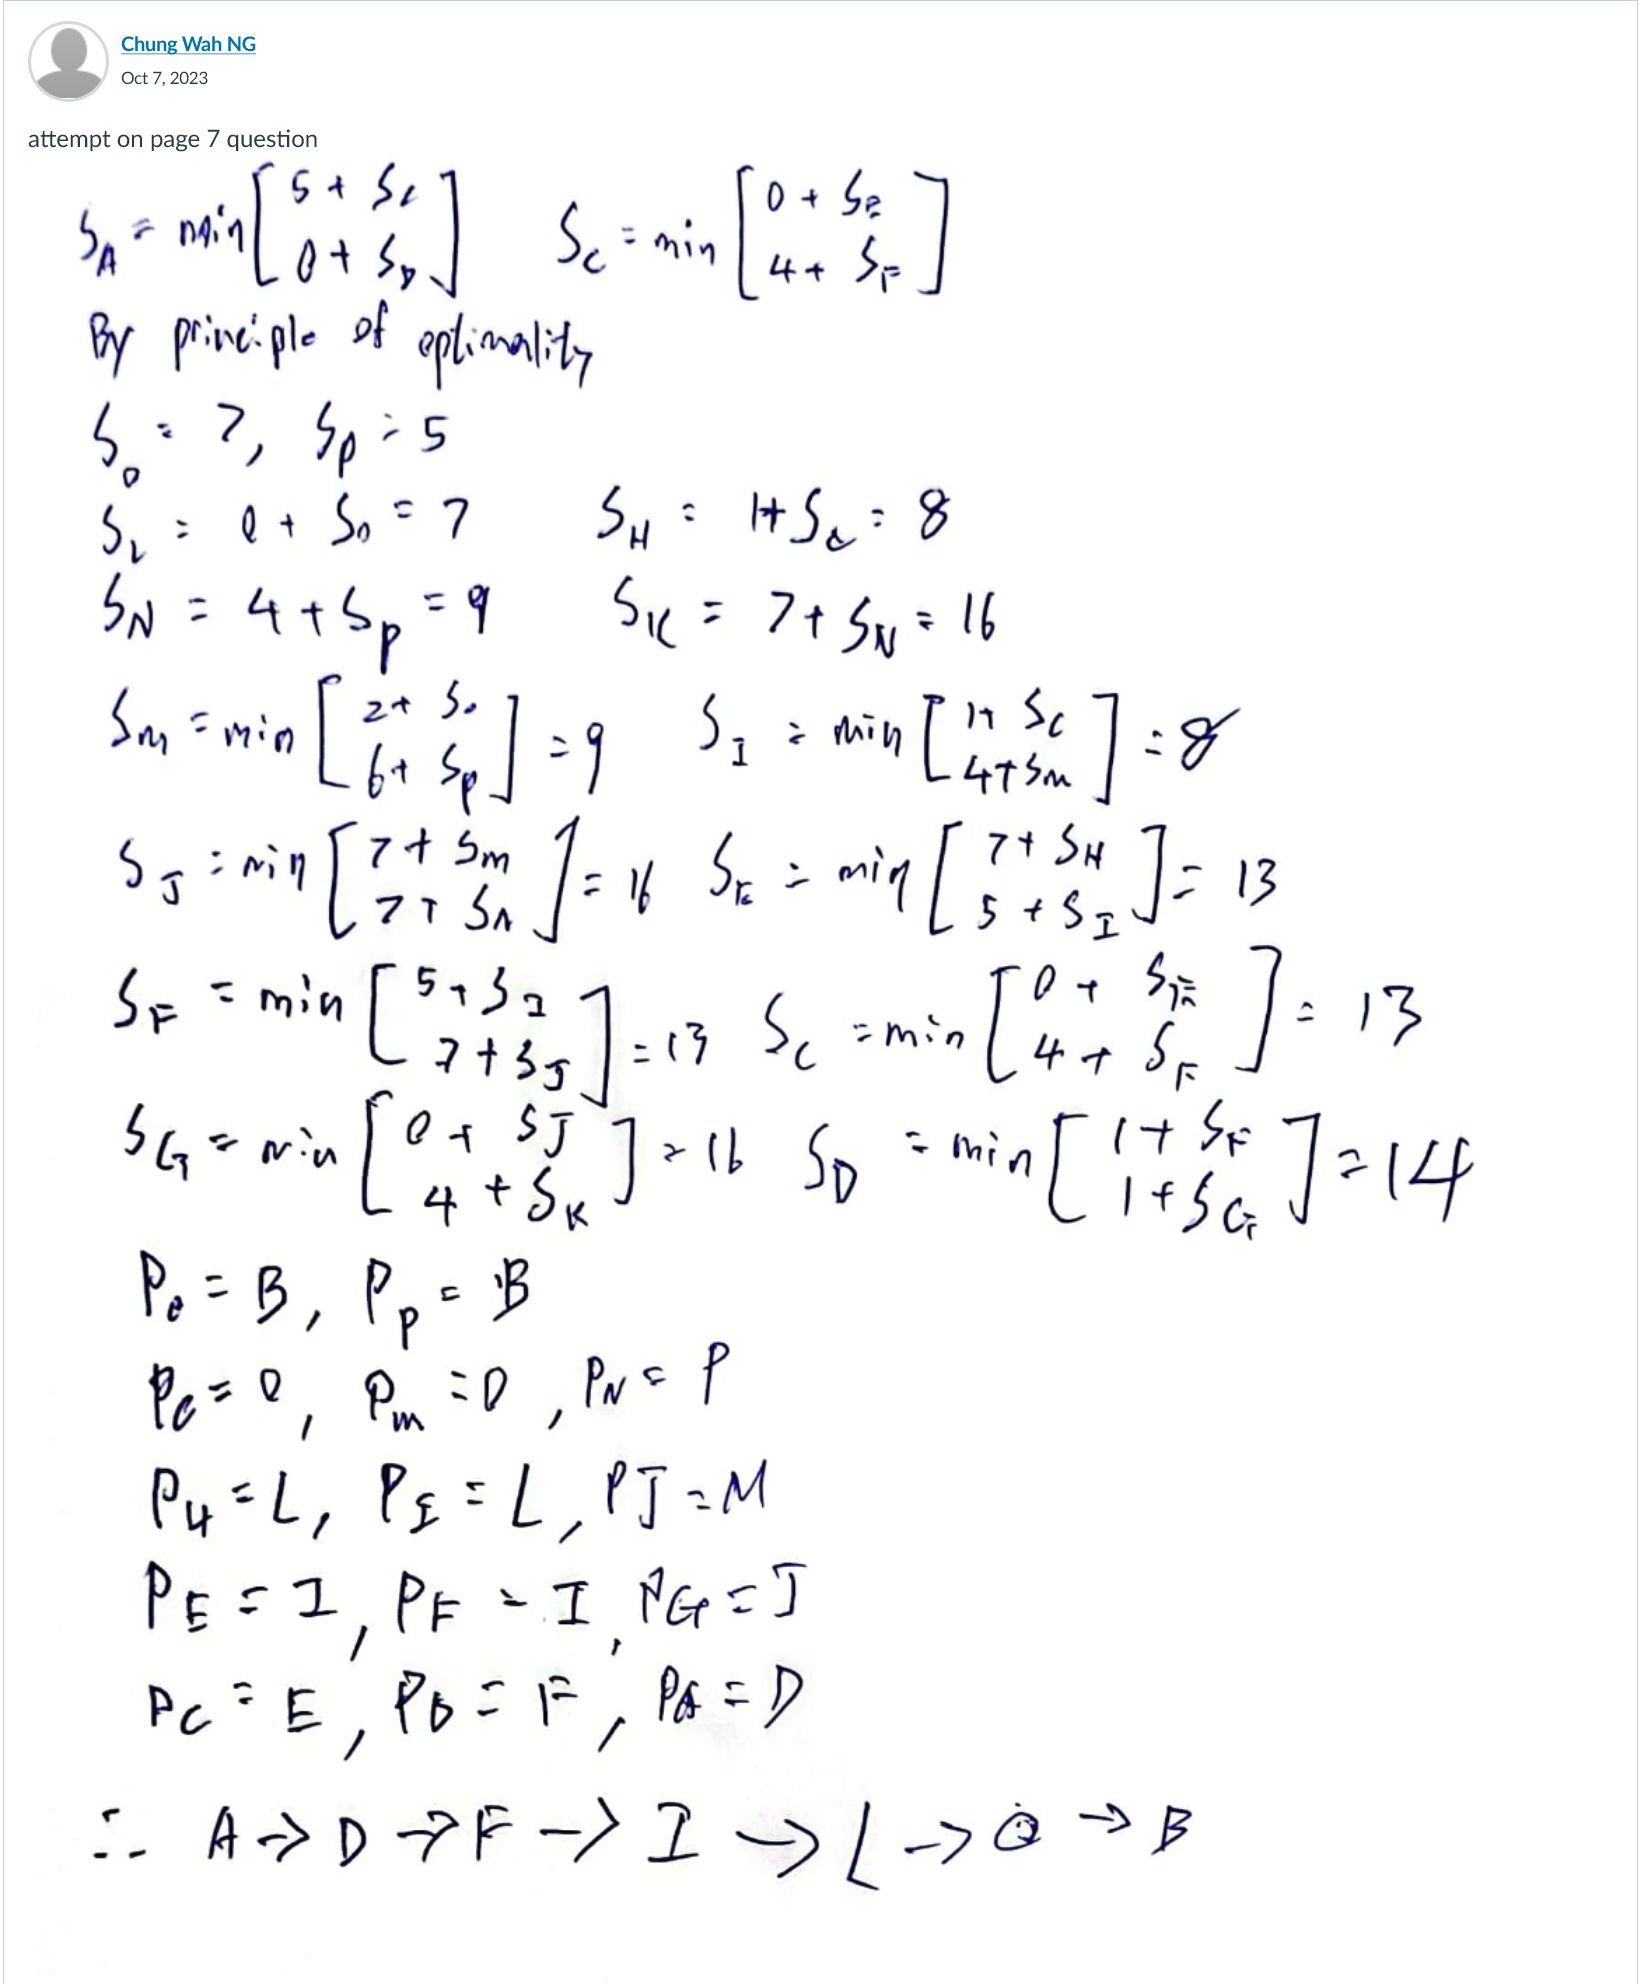 Chung Wah NG
Oct 7, 2023
attempt on page 7 question
S_A = min [ 5 + S_C / 0 + S_D ]   S_C = min [ 0 + S_E / 4 + S_F ]
By principle of optimality
S_O = 7, S_P = 5
S_L = 0 + S_O = 7   S_H = 1 + S_L = 8
S_N = 4 + S_P = 9   S_K = 7 + S_N = 16
S_m = min [ 2 + S_O / 6 + S_P ] = 9   S_I = min [ 1 + S_L / 4 + S_m ] = 8
S_J = min [ 7 + S_m / 7 + S_N ] = 16   S_E = min [ 7 + S_H / 5 + S_I ] = 13
S_F = min [ 5 + S_I / 7 + S_J ] = 13   S_C = min [ 0 + S_E / 4 + S_F ] = 13
S_G = min [ 0 + S_J / 4 + S_K ] = 16   S_D = min [ 1 + S_F / 1 + S_G ] = 14
P_O = B, P_P = B
P_L = O, P_m = O, P_N = P
P_H = L, P_I = L, P_J = M
P_E = I, P_F = I, P_G = J
P_C = E, P_D = F, P_A = D
∴ A → D → F → I → L → O → B